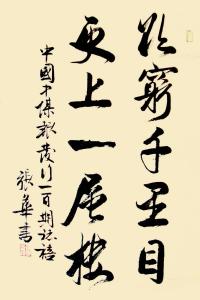 欲窮千里目
更上一層樓
中國保報發行一百期誌禧
張華書